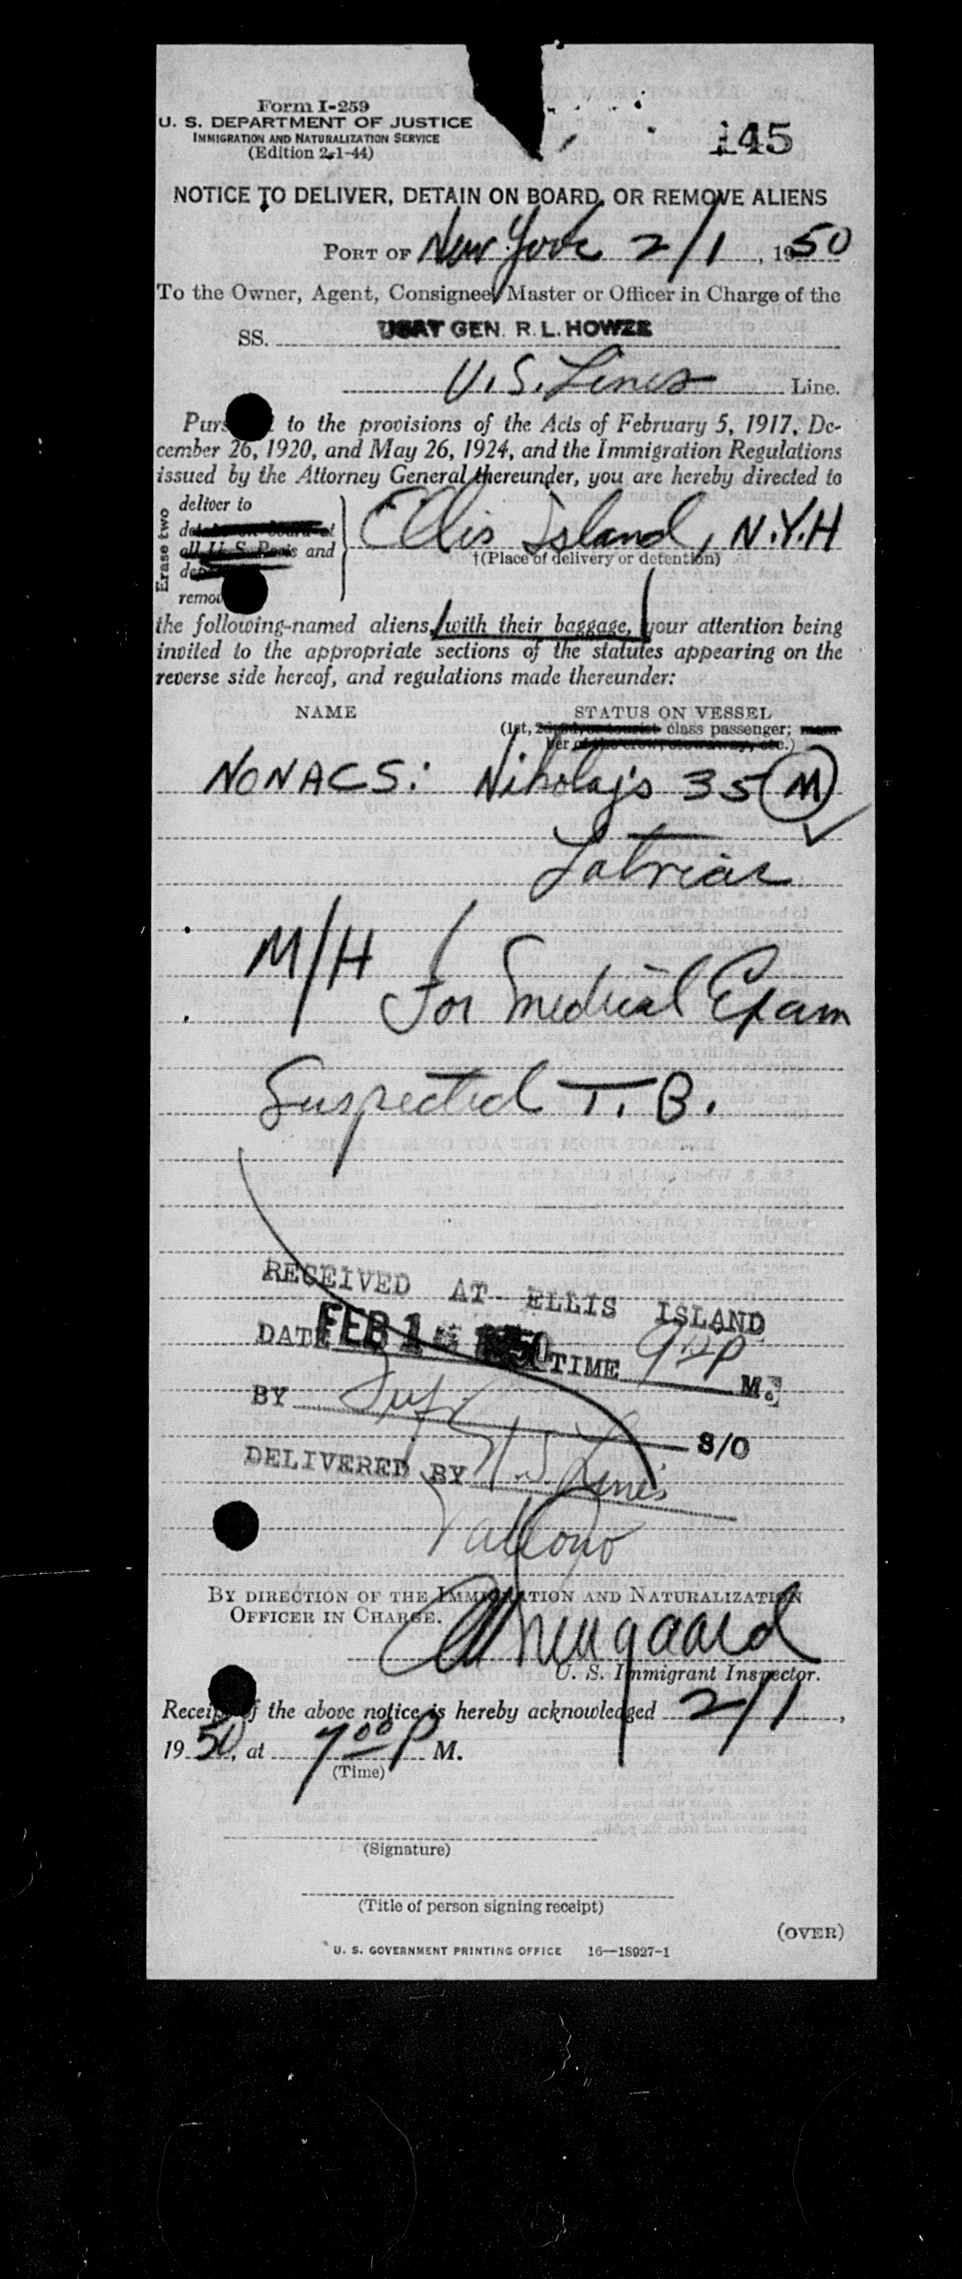 Form I-259
U. S. DEPARTMENT OF JUSTICE
IMMIGRATION AND NATURALIZATION SERVICE
(Edition 2-1-44)
145
NOTICE TO DELIVER, DETAIN ON BOARD, OR REMOVE ALIENS
PORT OF New York 2/1, 1950
To the Owner, Agent, Consignee, Master or Officer in Charge of the
SS. USAT GEN. R. L. HOWZE
U.S. Lines Line.
to the provisions of the Acts of February 5, 1917, De-
cember 26, 1920, and May 26, 1924, and the Immigration Regulations
issued by the Attorney General thereunder, you are hereby directed to
Erase two
deliver to
all U. S. Ports and
Ellis Island, N.Y.H
†(Place of delivery or detention)
the following-named aliens, with their baggage, your attention being
invited to the appropriate sections of the statutes appearing on the
reverse side hereof, and regulations made thereunder:
NAME STATUS ON VESSEL
(1st, class passenger;
NONACS: Nikolajs 35 M
Latvian
M/H For Medical Exam
Suspected T. B.
RECEIVED AT ELLIS ISLAND
DATE FEB 1 1950 TIME P M.
BY S/O
DELIVERED BY U.S. Lines
BY DIRECTION OF THE IMMIGRATION AND NATURALIZATION
OFFICER IN CHARGE.
U. S. Immigrant Inspector.
Receipt of the above notice is hereby acknowledged 2/1,
1950, at 7 00 P M.
(Time)
(Signature)
(Title of person signing receipt)
(OVER)
U. S. GOVERNMENT PRINTING OFFICE 16—18927-1